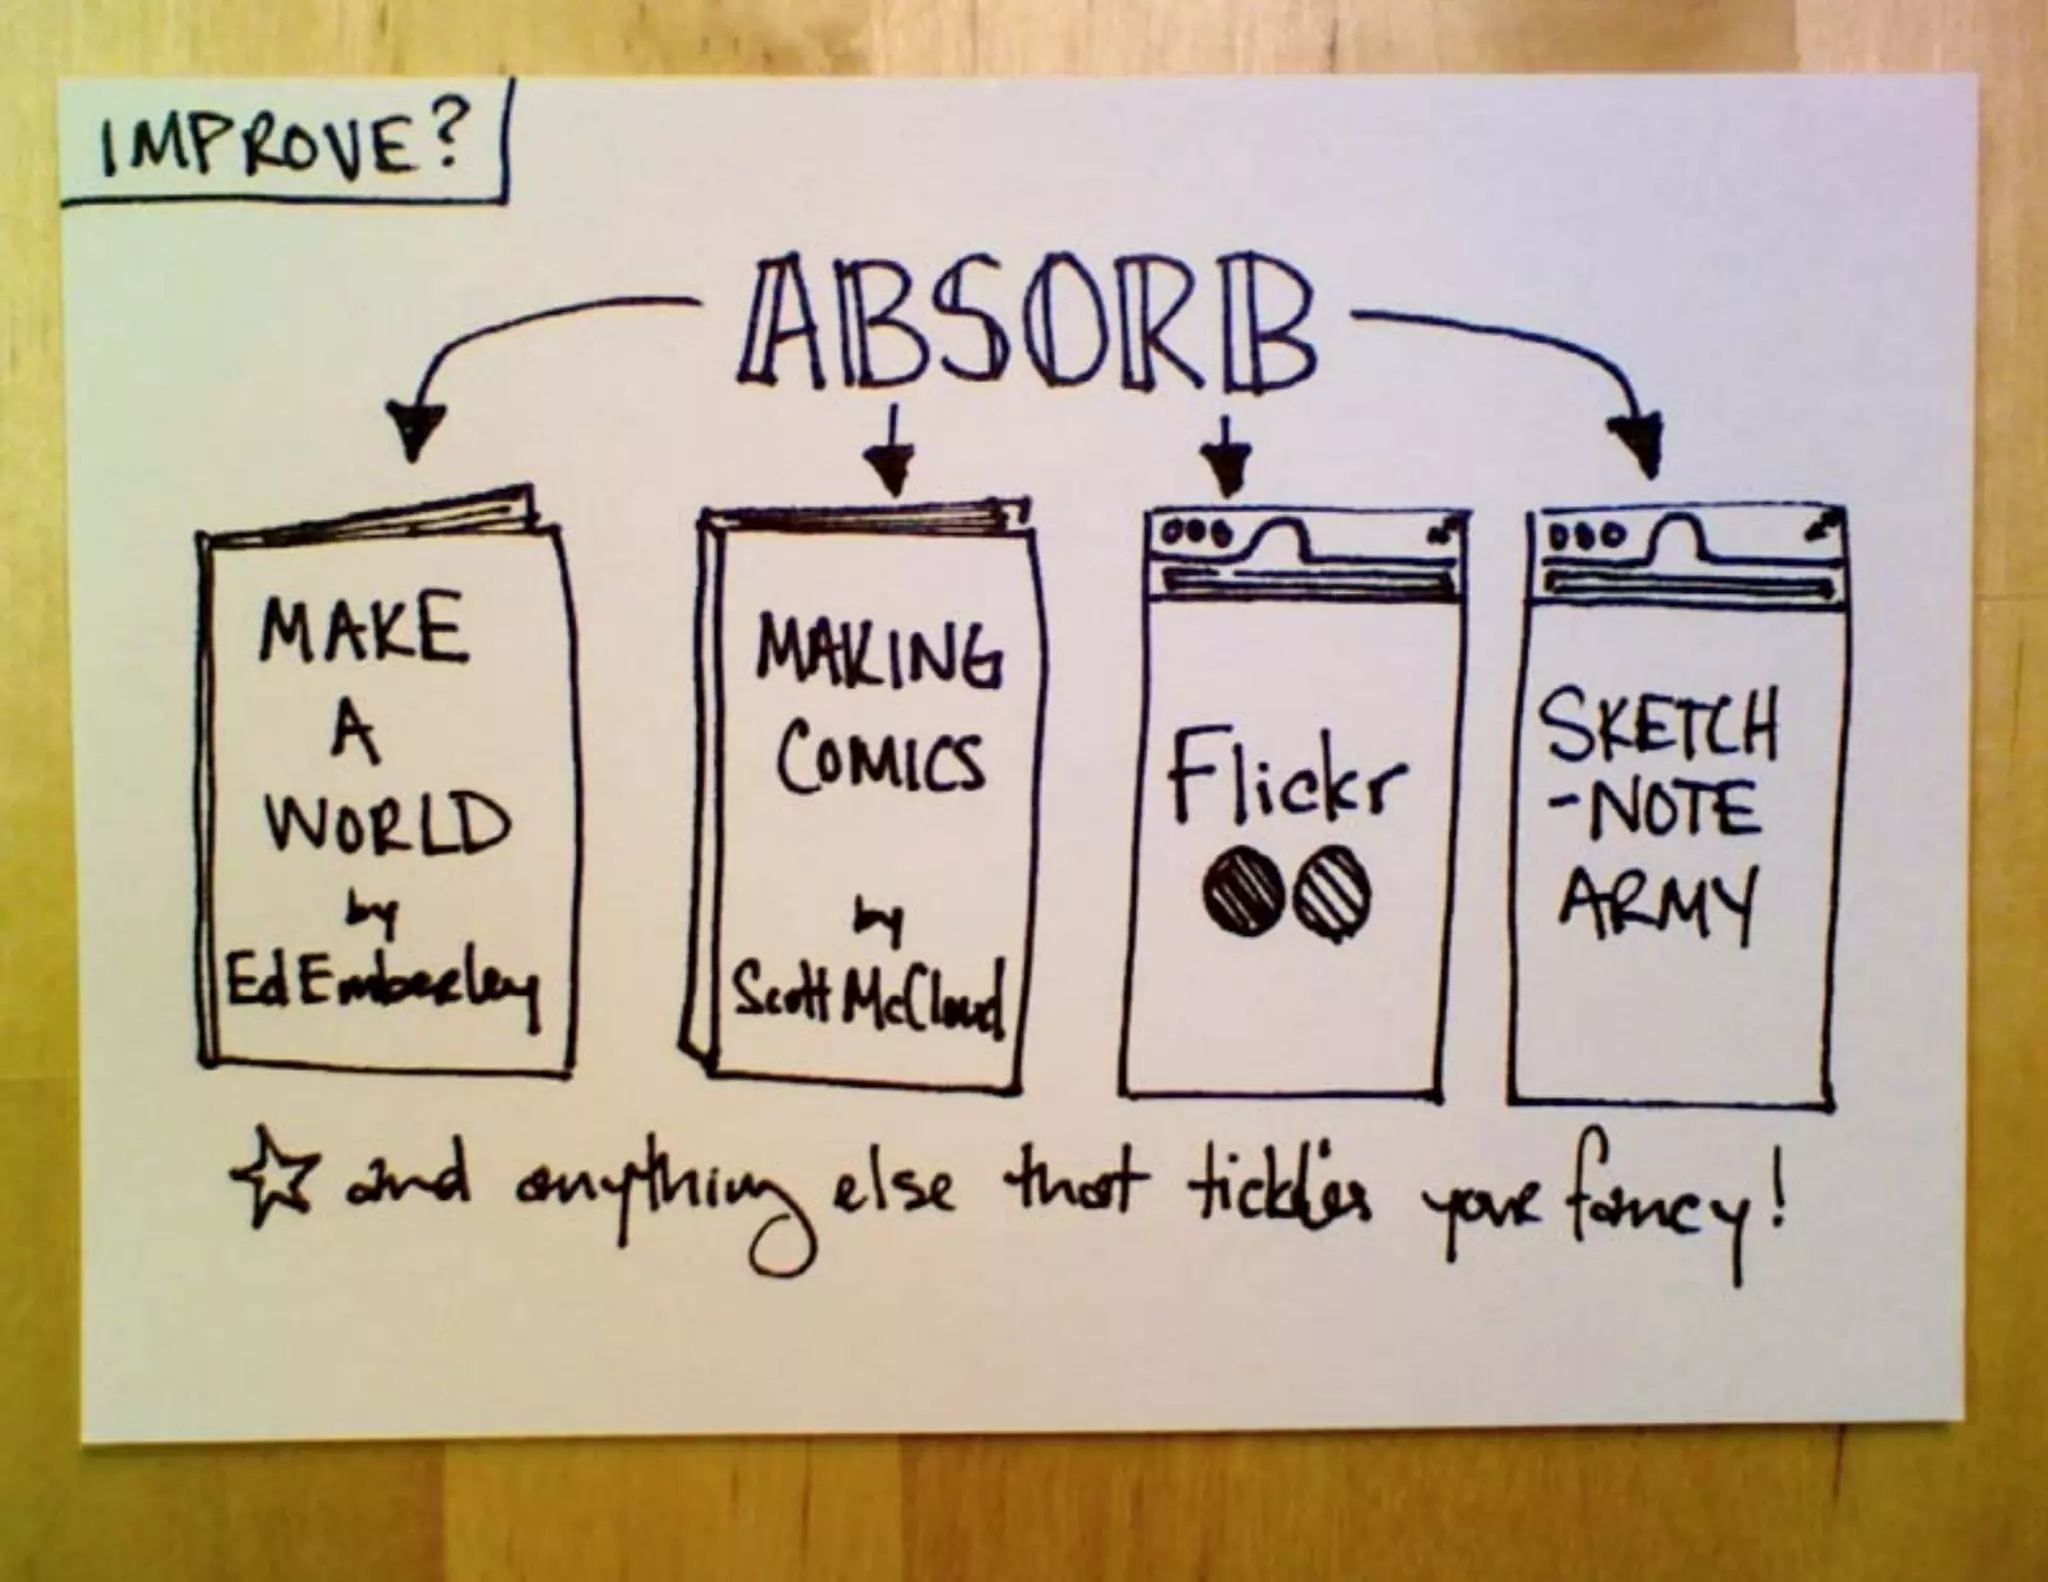 IMPROVE?
ABSORB
MAKE
A
WORLD
by
Ed Emberley
MAKING
COMICS
by
Scott McCloud
Flickr
SKETCH
-NOTE
ARMY
☆ and anything else that tickles your fancy!